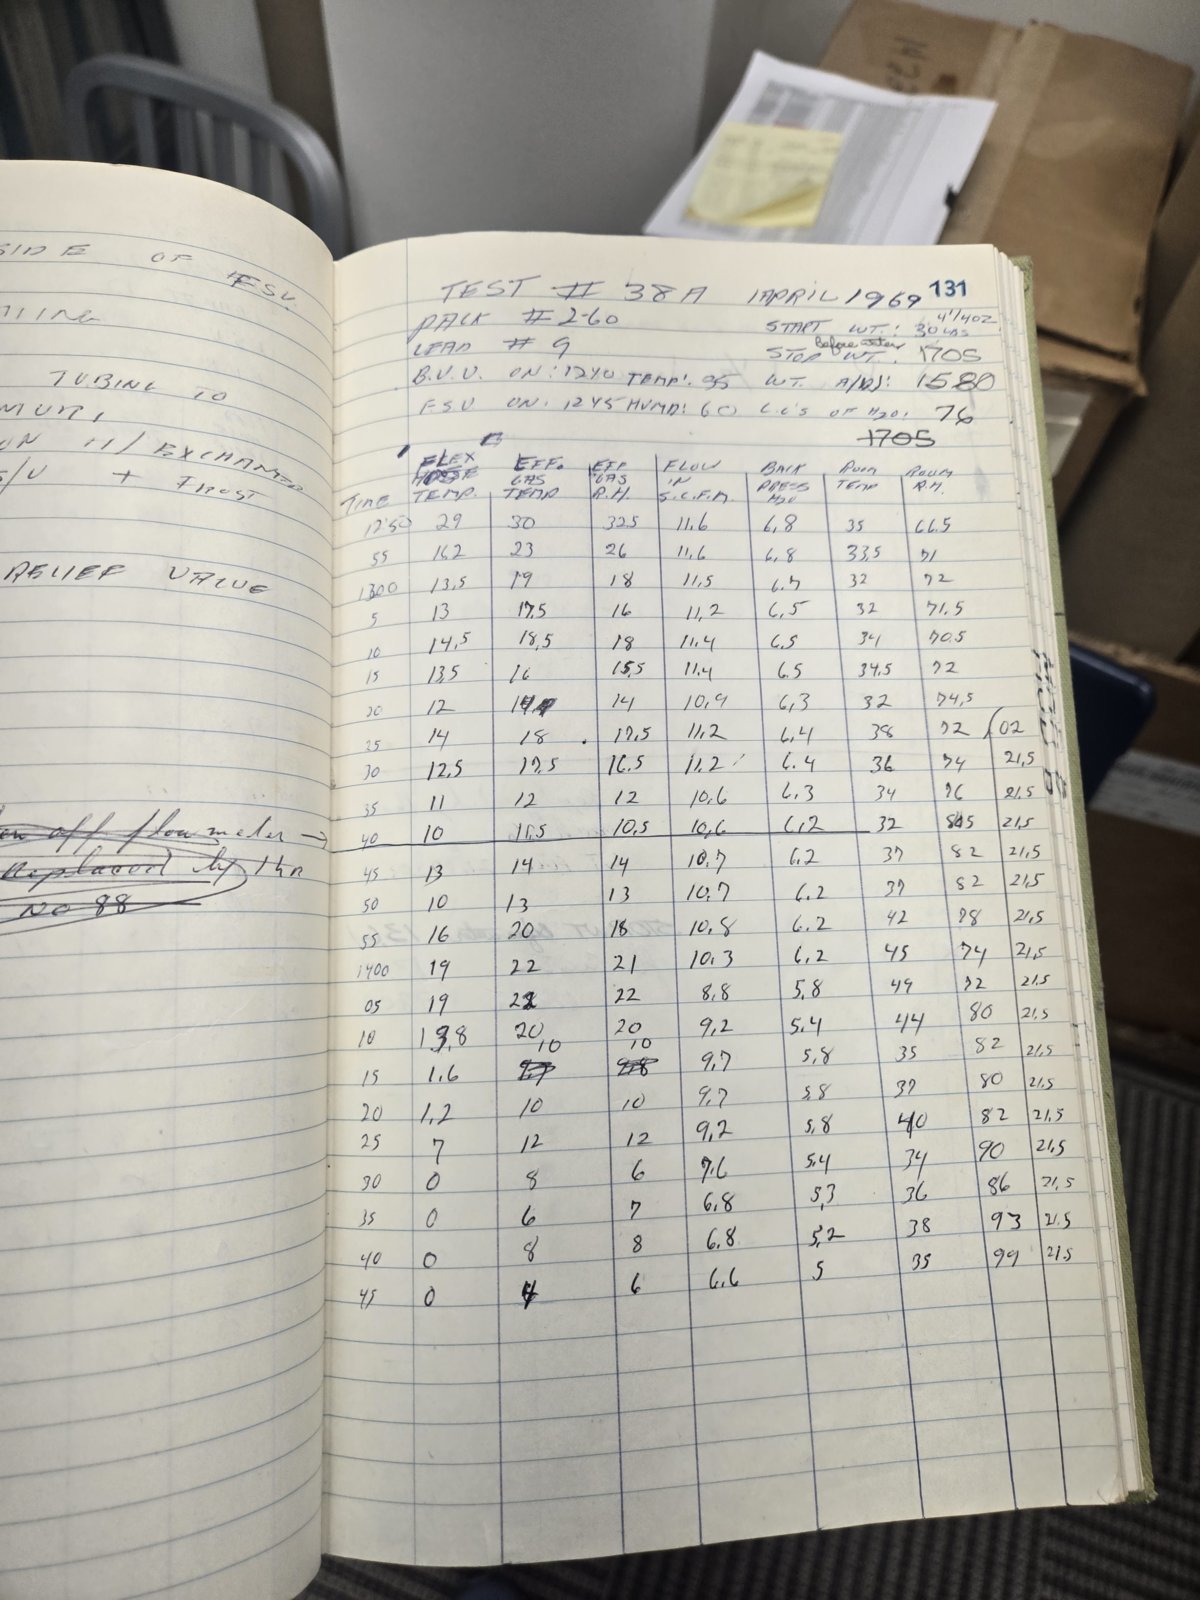 SIDE OF FSV.
TUBING TO
+ FROST
RELIEF VALVE
off flow meter →
Replaced by 1 hr
NO 88
TEST # 38A 1 APRIL 1969 131
PACK # 260 START WT.: 30 LBS 4 1/4 OZ
LEAD # 9 STOP WT. 1705
B.V.V. ON: 1240 TEMP: 95 WT. 1580
FSV ON: 1245 HUMD: 60 C.C'S OF H2O: 76
1705
TIME FLEX HOSE TEMP. EFF. GAS TEMP EFF GAS R.H. FLOW IN S.C.F.M. BACK PRESS H2O ROOM TEMP ROOM R.H.
1250 29 30 32.5 11.6 6.8 35 66.5
55 16.2 23 26 11.6 6.8 33.5 71
1300 13.5 19 18 11.5 6.7 32 72
5 13 17.5 16 11.2 6.5 32 71.5
10 14.5 18.5 18 11.4 6.5 34 70.5
15 13.5 16 15.5 11.4 6.5 34.5 72
20 12 14 10.9 6.3 32 74.5
25 14 18 17.5 11.2 6.4 38 72 02
30 12.5 17.5 16.5 11.2 6.4 36 74 21.5
35 11 12 12 10.6 6.3 34 76 21.5
40 10 11.5 10.5 10.6 6.2 32 21.5
45 13 14 14 10.7 6.2 37 82 21.5
50 10 13 13 10.7 6.2 37 82 21.5
55 16 20 18 10.8 6.2 42 78 21.5
1400 19 22 21 10.3 6.2 45 74 21.5
05 19 22 8.8 5.8 49 72 21.5
10 13.8 20 20 9.2 5.4 44 80 21.5
15 1.6 10 10 9.7 5.8 35 82 21.5
20 1.2 10 10 9.7 5.8 37 80 21.5
25 7 12 12 9.2 5.8 40 82 21.5
30 0 8 6 7.6 5.4 34 90 21.5
35 0 6 7 6.8 5.3 36 86 21.5
40 0 8 8 6.8 5.2 38 93 21.5
45 0 4 6 6.6 5 35 99 21.5